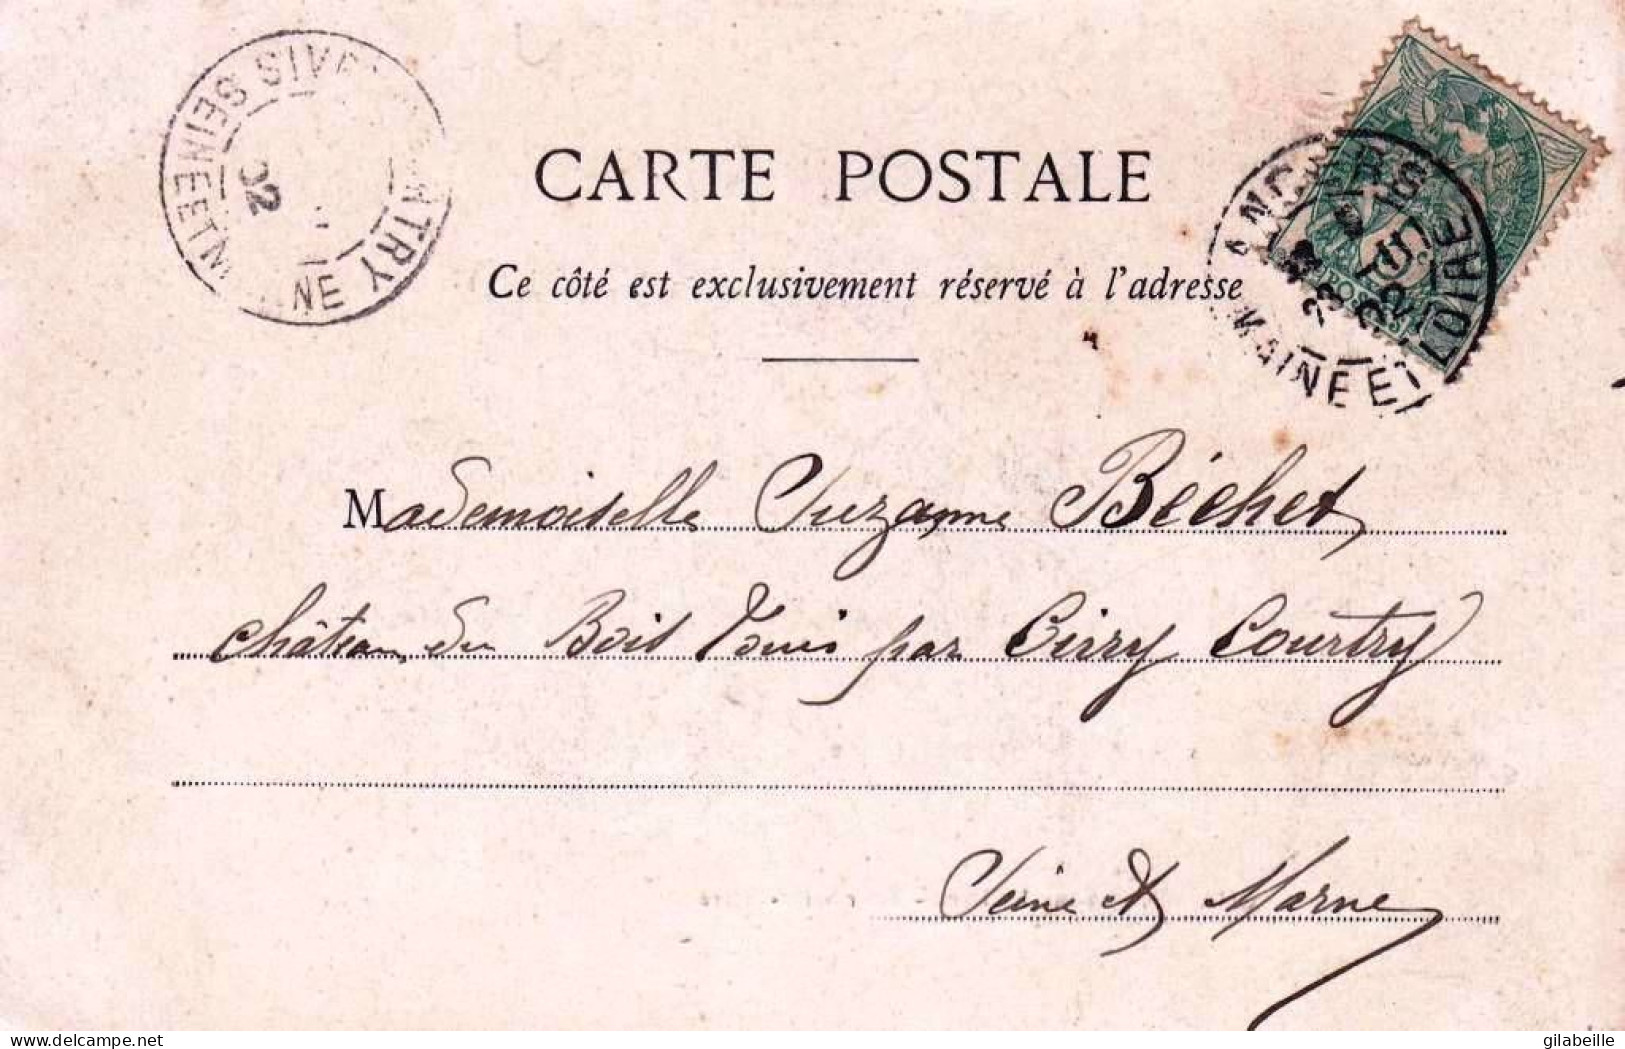 CARTE POSTALE
Ce côté est exclusivement réservé à l'adresse
Mademoiselle Suzanne Béchet
château du Bois Louis par Cirry Courtry
Seine & Marne
SEINE ET
NE
TRY
02
MAINE ET LOIRE
23
02
delcampe.net
gilabeille